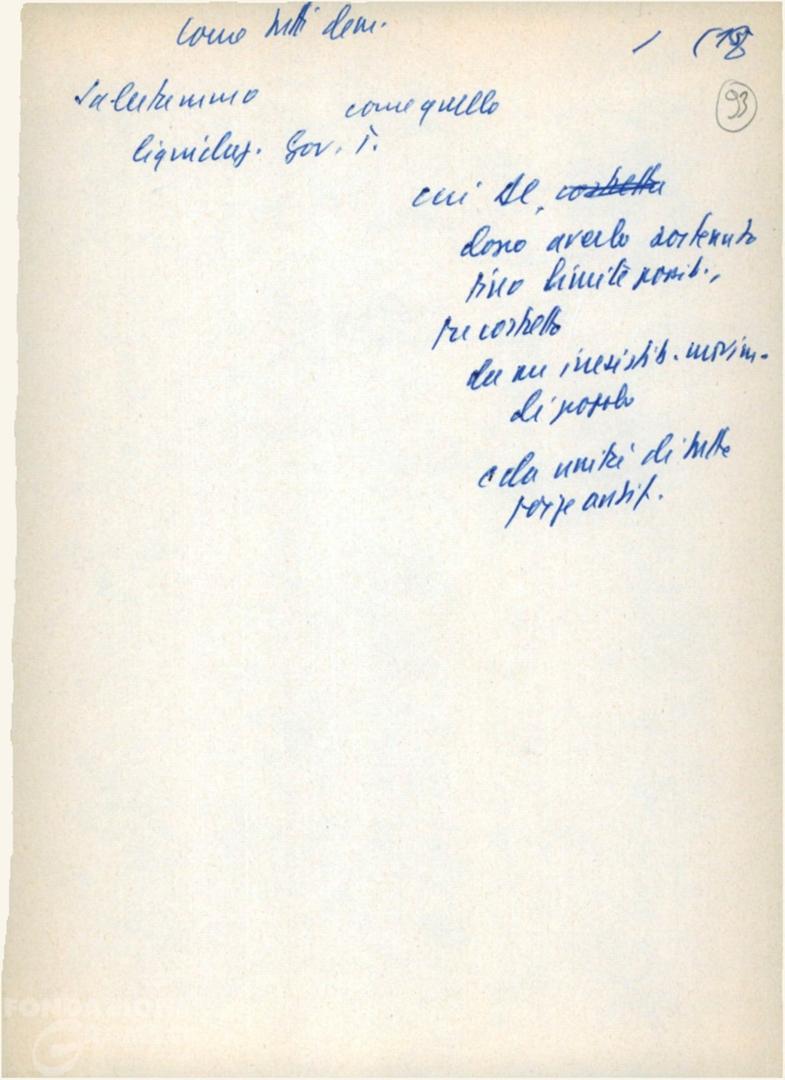 come tutti dem.
/ (18
93
Salutammo come quello
liquidaz. Gov. T.
cui DC, costretta
dopo averlo sostenuto
fino limite possib.,
fu costretta
da un irresistib. movim.
di popolo
e da unità di tutte
forze antif.
FONDAZIONE